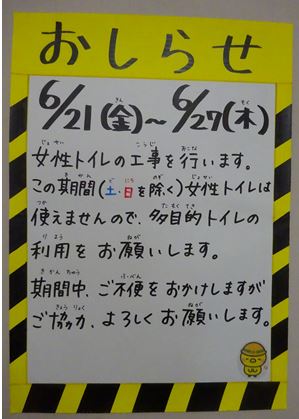 おしらせ
6/21(金)〜6/27(木)
女性トイレの工事を行います。
この期間(土・日を除く)女性トイレは
使えませんので、多目的トイレの
利用をお願いします。
期間中、ご不便をおかけしますが
ご協力、よろしくお願いします。